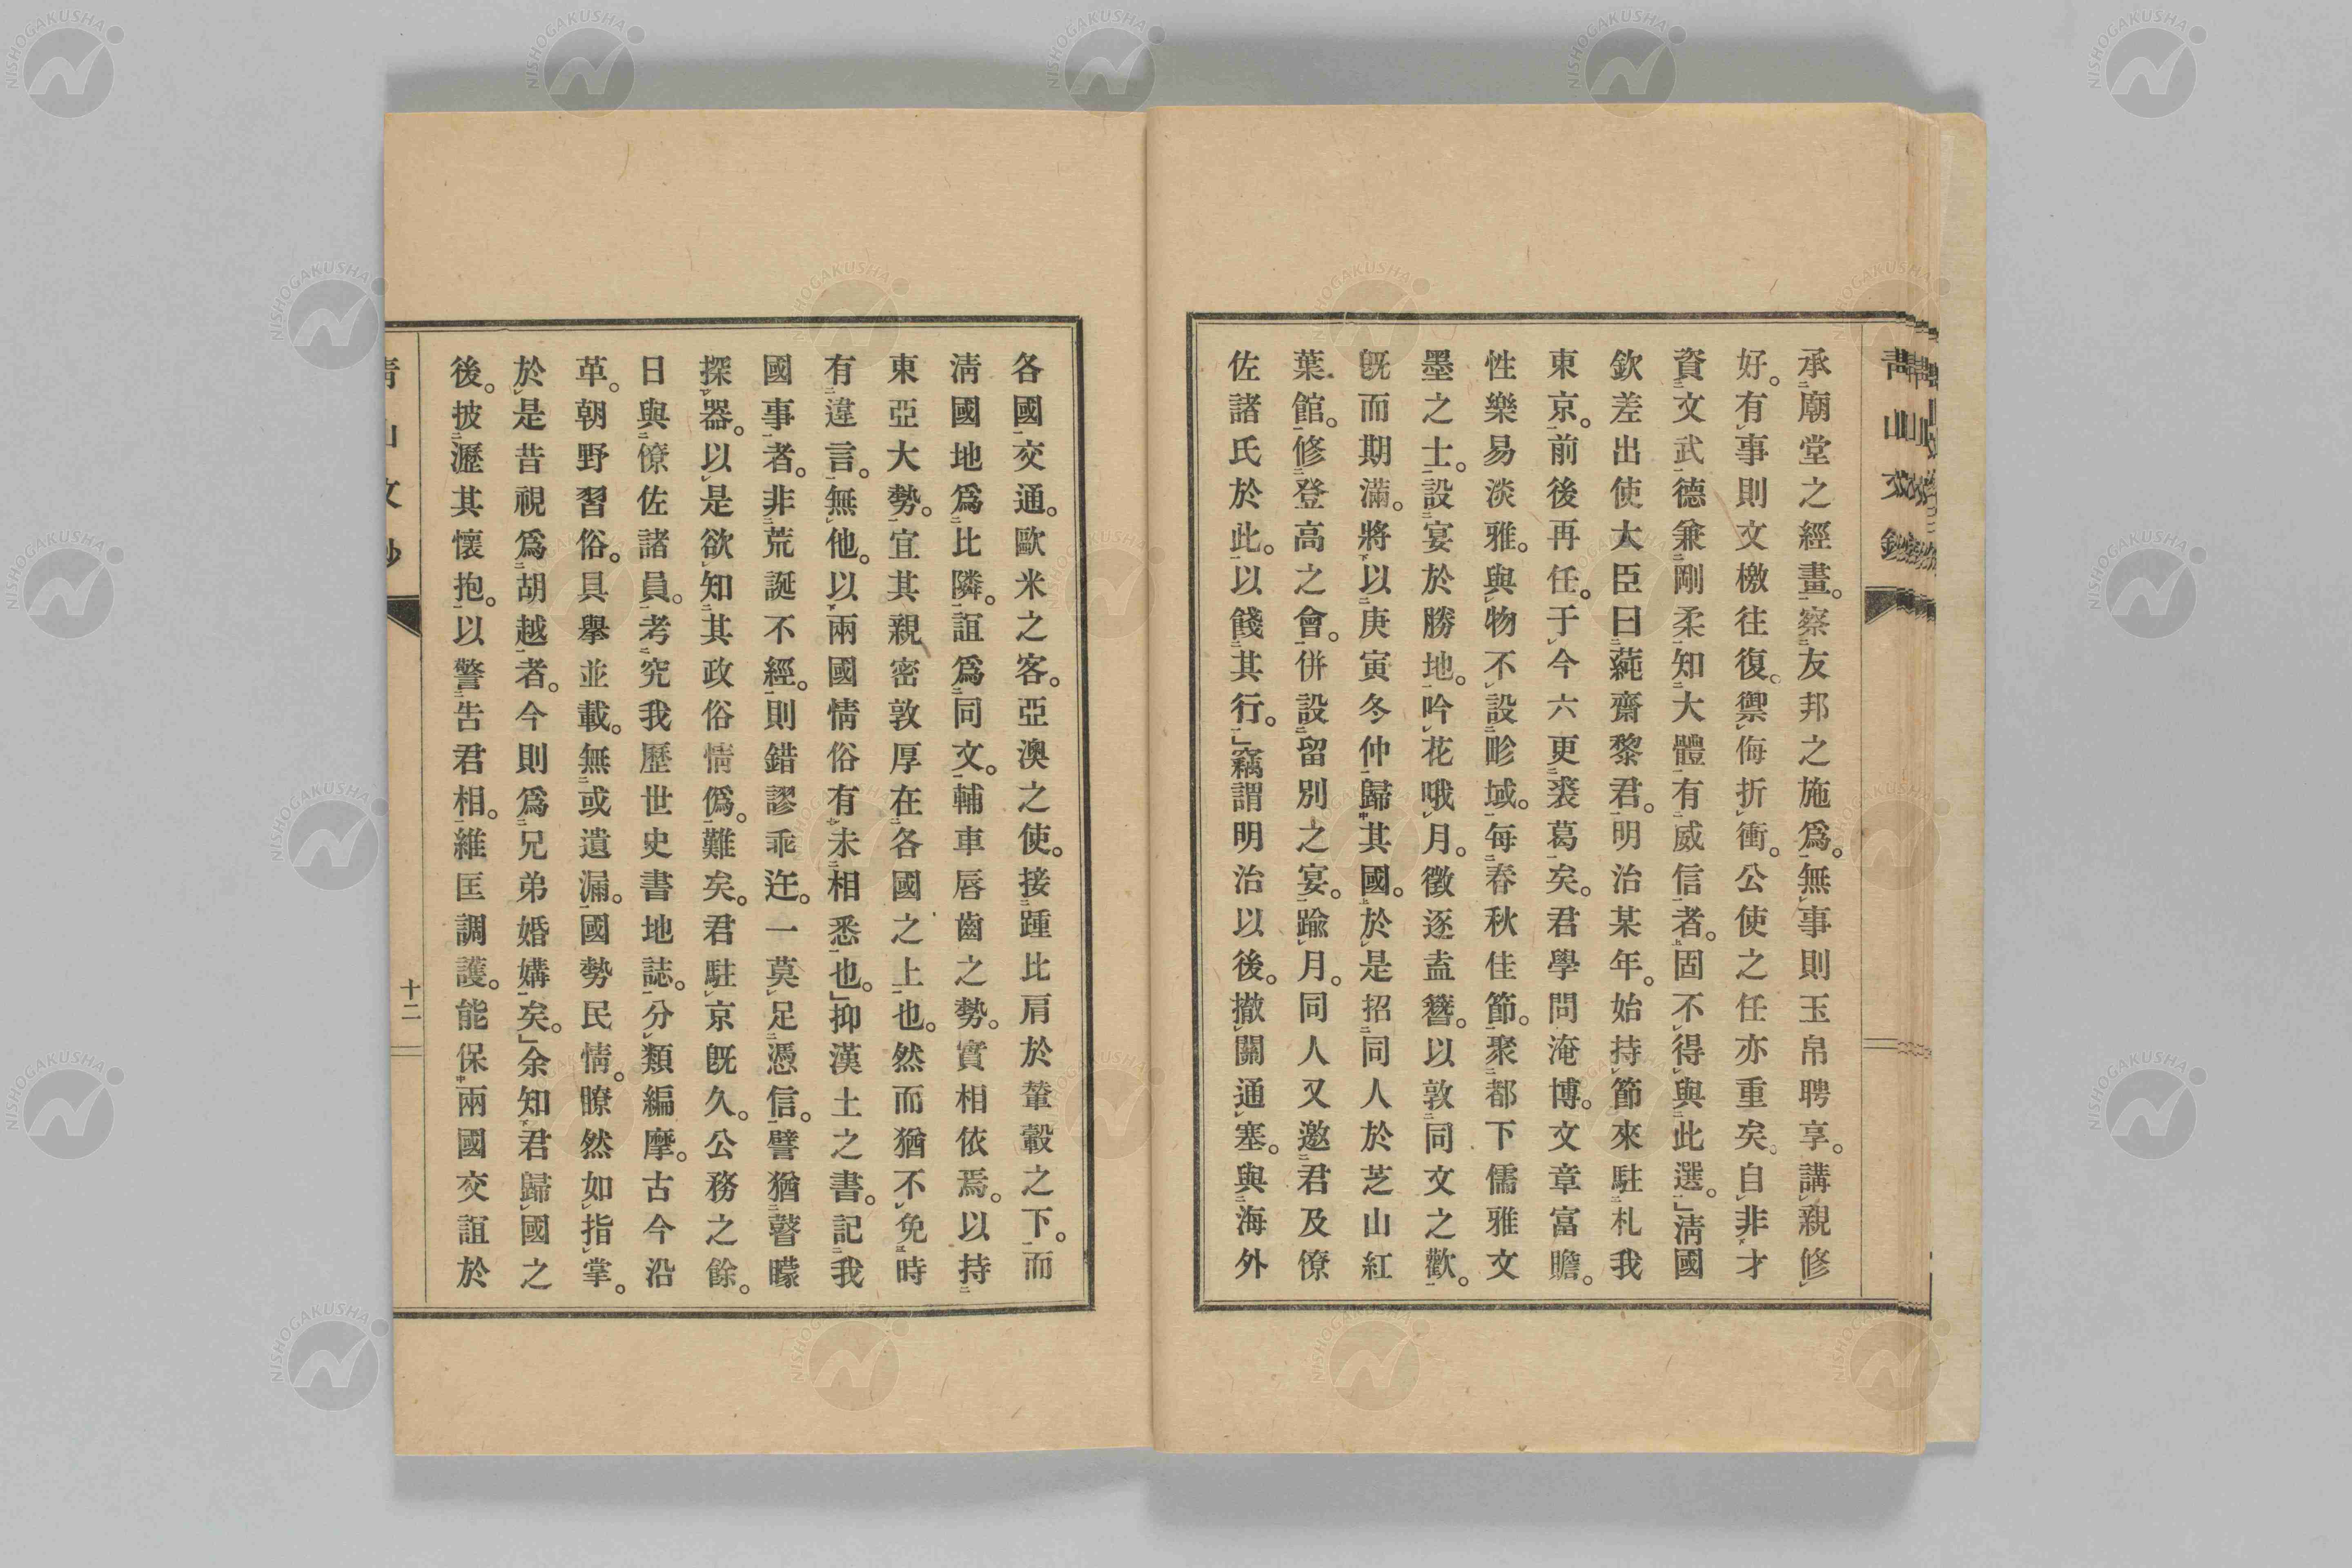 青山文鈔
承廟堂之經畫。察友邦之施爲。無事則玉帛聘享。講親修
好。有事則文檄往復。禦侮折衝。公使之任亦重矣。自非才
資文武德兼剛柔知大體有威信者。固不得與此選。」淸國
欽差出使大臣曰蒓齋黎君。明治某年。始持節來駐札我
東京。前後再任。于今六更裘葛矣。君學問淹博。文章富贍。
性樂易淡雅。與物不設畛域。每春秋佳節。聚都下儒雅文
墨之士。設宴於勝地。吟花哦月。徵逐盍簪。以敦同文之歡。
既而期滿。將以庚寅冬仲歸其國。於是招同人於芝山紅
葉館。修登高之會。併設留別之宴。踰月。同人又邀君及僚
佐諸氏於此。以餞其行。」竊謂明治以後。撤關通塞。與海外
各國交通。歐米之客。亞澳之使。接踵比肩於輦轂之下。而
淸國地爲比隣。誼爲同文。輔車唇齒之勢。實相依焉。以持
東亞大勢。宜其親密敦厚在各國之上也。然而猶不免時
有違言。無他。以兩國情俗有未相悉也。」抑漢土之書。記我
國事者。非荒誕不經。則錯謬乖迕。一莫足憑信。譬猶瞽矇
探器。以是欲知其政俗情僞。難矣。君駐京既久。公務之餘。
日與僚佐諸員。考究我歷世史書地誌。分類編摩。古今沿
革。朝野習俗。具擧並載。無或遺漏。國勢民情。瞭然如指掌。
於是昔視爲胡越者。今則爲兄弟婚媾矣。」余知君歸國之
後。披瀝其懷抱。以警告君相。維匡調護。能保兩國交誼於
青山文鈔
十二